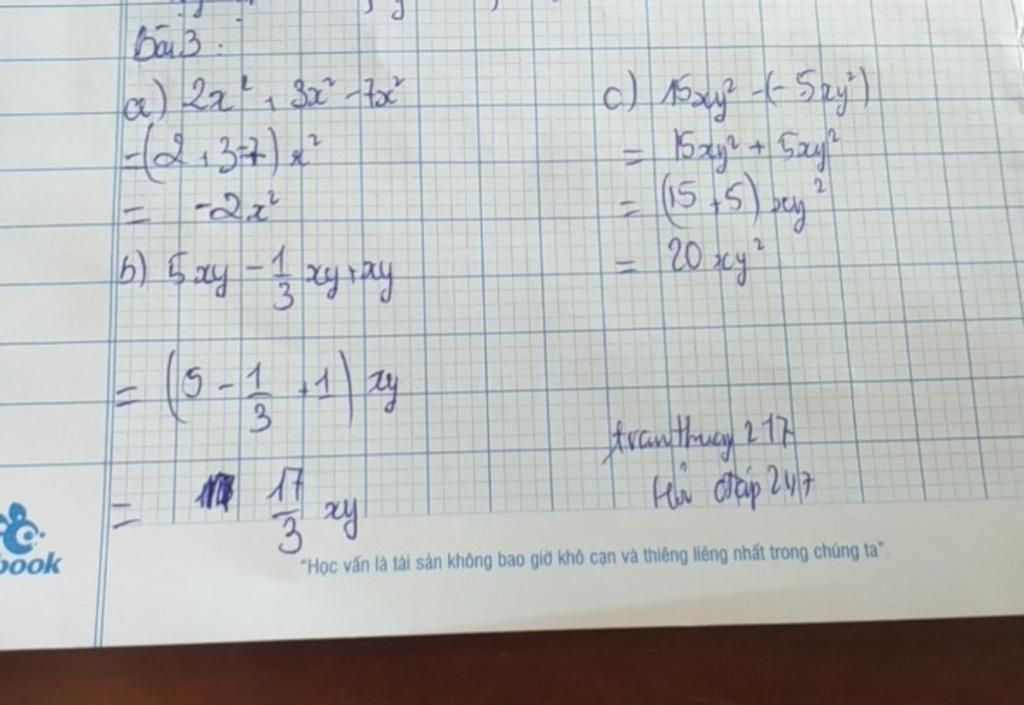 Bài 3 :
a) 2x² + 3x² - 7x²
= (2 + 3 - 7) x²
= -2x²
b) 5xy - 1/3 xy + xy
= (5 - 1/3 + 1) xy
= 17/3 xy
c) 15xy² - (-5xy²)
= 15xy² + 5xy²
= (15 + 5) xy²
= 20 xy²
tranthuay 217
đáp 247
book
"Học vấn là tài sản không bao giờ khô cạn và thiêng liêng nhất trong chúng ta".